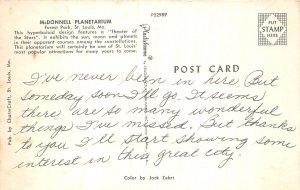 McDONNELL PLANETARIUM
Forest Park, St. Louis, Mo.
This hyperboloid design features a "Theater of
the Stars". It exhibits the sun, moon and planets
in their apparent courses among the constellations.
This planetarium will certainly be one of St. Louis'
most popular attractions for many years to come.
P52989
Plastichrome
PLACE
STAMP
HERE
POST CARD
I've never been in here But
someday soon I'll go. It seems
there are so many wonderful
things I've missed. But thanks
to you I'll start showing some
interest in this great city.
Color by Jack Zehrt
Pub by ChromCraft, St. Louis, Mo.